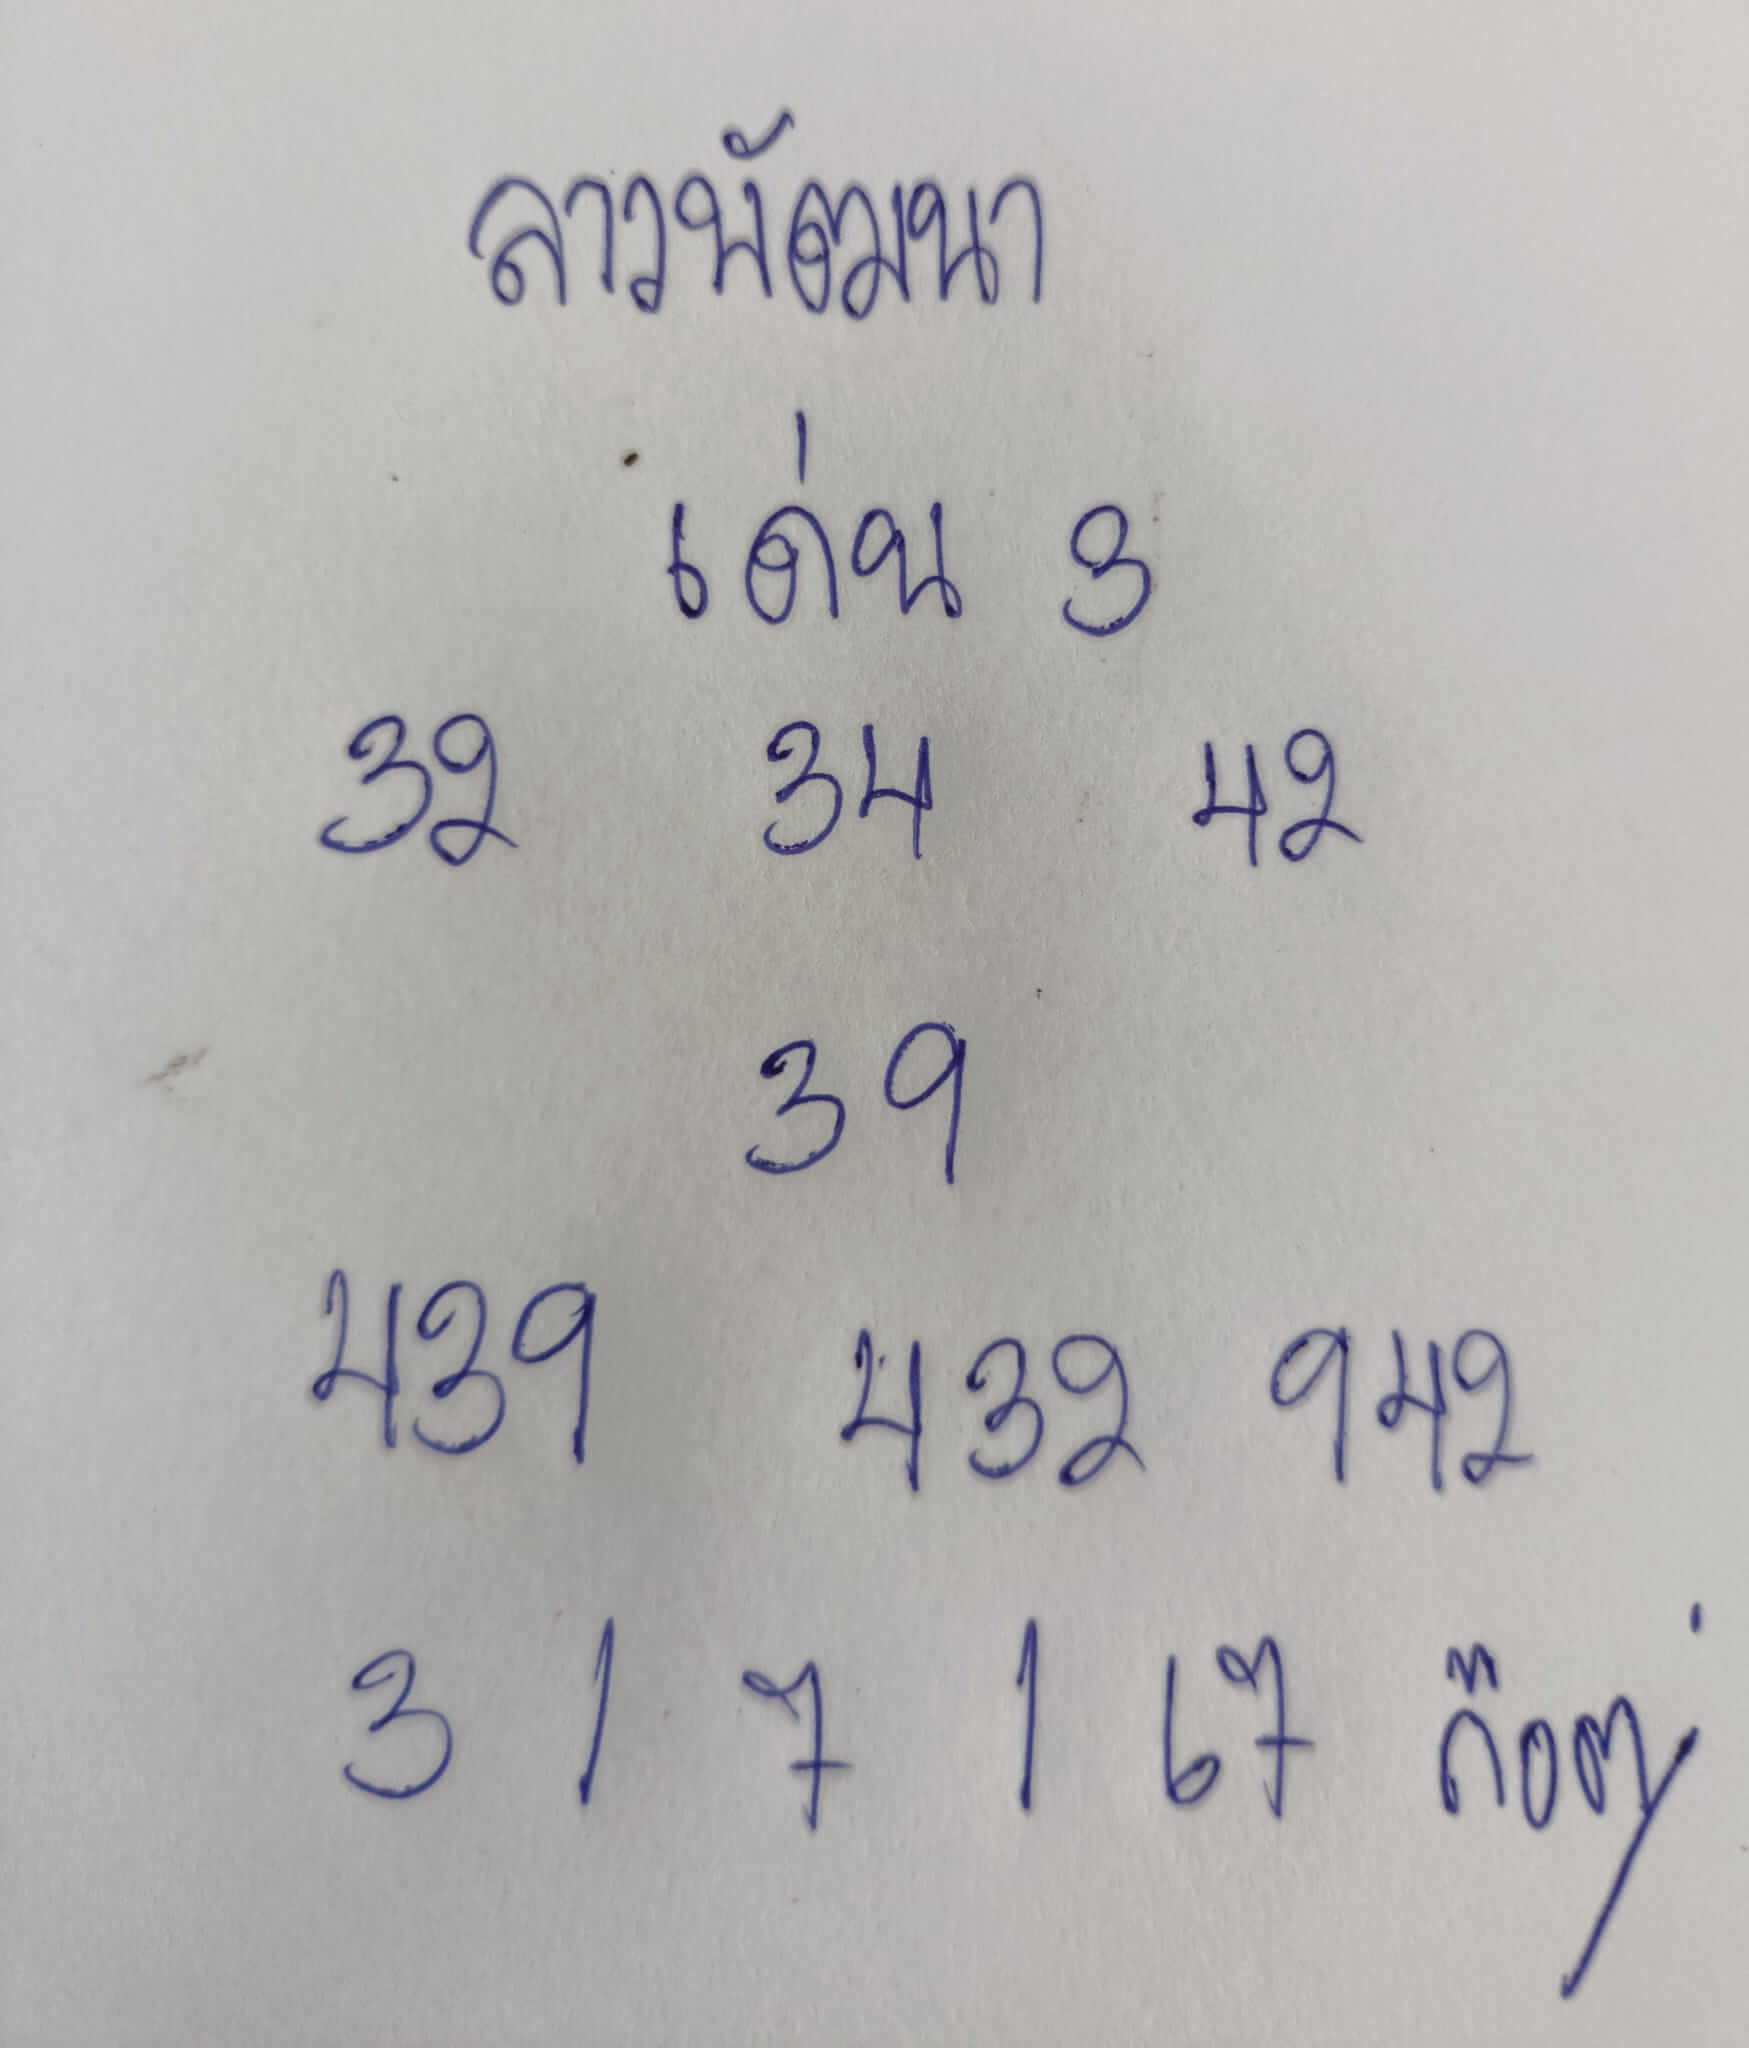 ลาวพัฒนา
เด่น 3
32 34 42
39
439 432 942
3 / 7 / 67